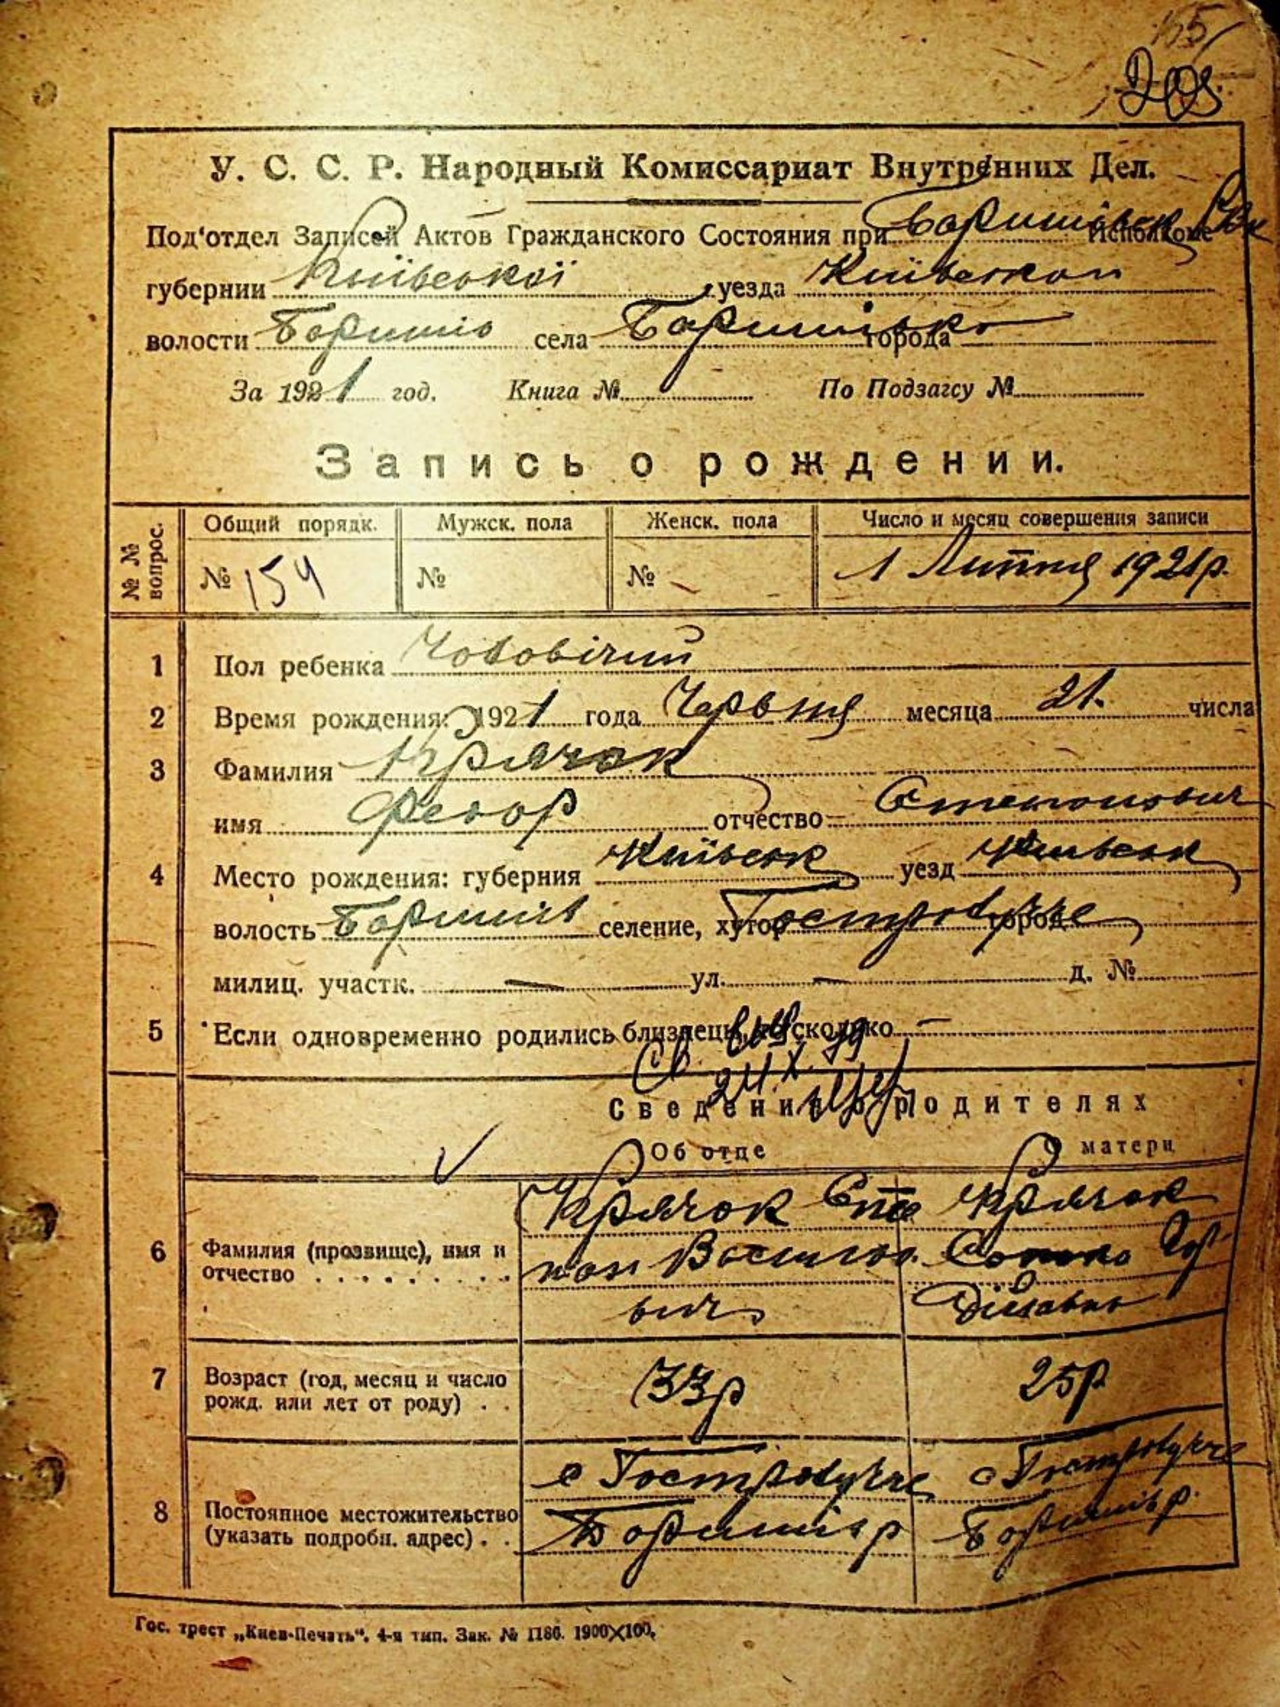 У. С. С. Р. Народный Комиссариат Внутренних Дел.
Под'отдел Записей Актов Гражданского Состояния при Исполкоме
губернии Київської уезда Київського
волости Баришів села города
За 1921 год. Книга № По Подзагсу №
Запись о рождении.
№ № вопрос. Общий порядк. Мужск. пола Женск. пола Число и месяц совершения записи
№ 154 № № 1 Липня 1921р.
1 Пол ребенка Чоловічий
2 Время рождения: 1921 года Червня месяца 21. числа
3 Фамилия Крячок
имя Федор отчество Степанович
4 Место рождения: губерния Київськ уезд Київськ
волость Баришів селение, хутор Гостролуччє город
милиц. участк. — ул. — д. №
5 Если одновременно родились близнецы, то сколько —
24.X.
Сведения о родителях
Об отце О матери
6 Фамилия (прозвище), имя и отчество
Крячок Сте Крячок
пан Васильо
вич
7 Возраст (год, месяц и число рожд. или лет от роду) 33р 25р
8 Постоянное местожительство (указать подробн. адрес)
с Гостролуччє с Гостролуччє
Баришів р Баришів р.
Гос. трест „Киев-Печать“. 4-я тип. Зак. № 1186. 1900X100.